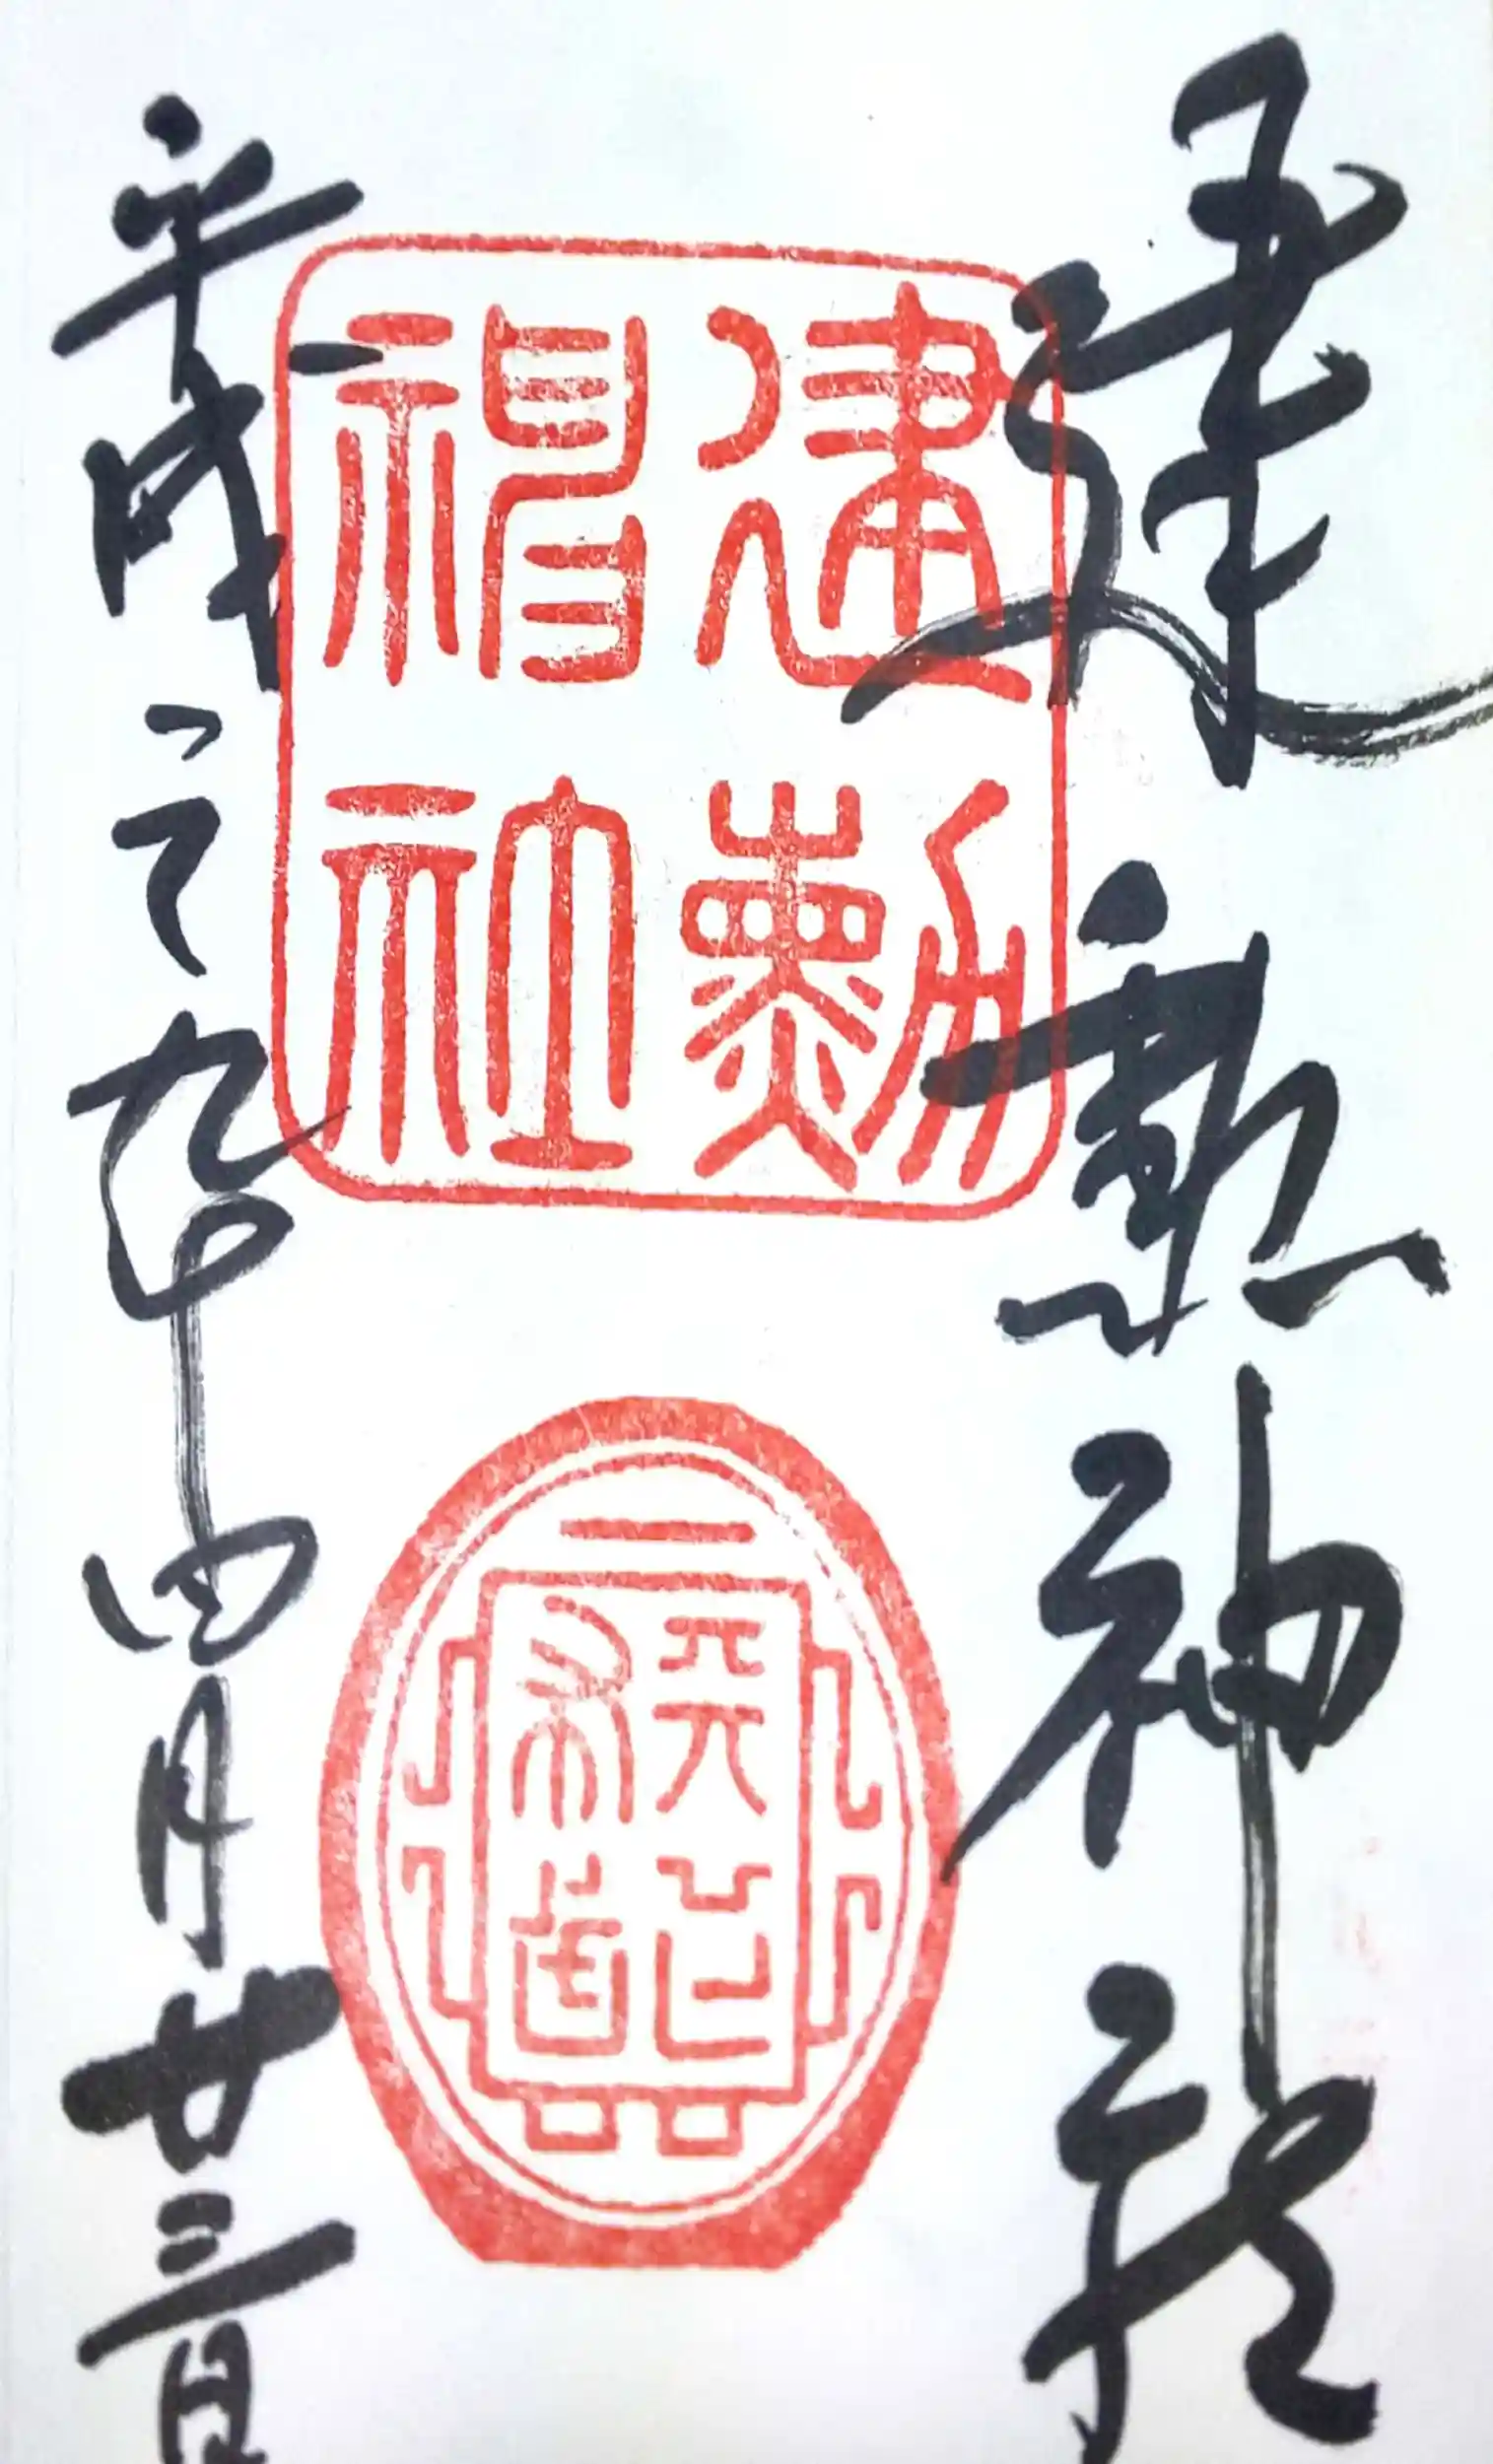 建勲神社
建勲
神社
天下布武
平成二九年四月廿三日